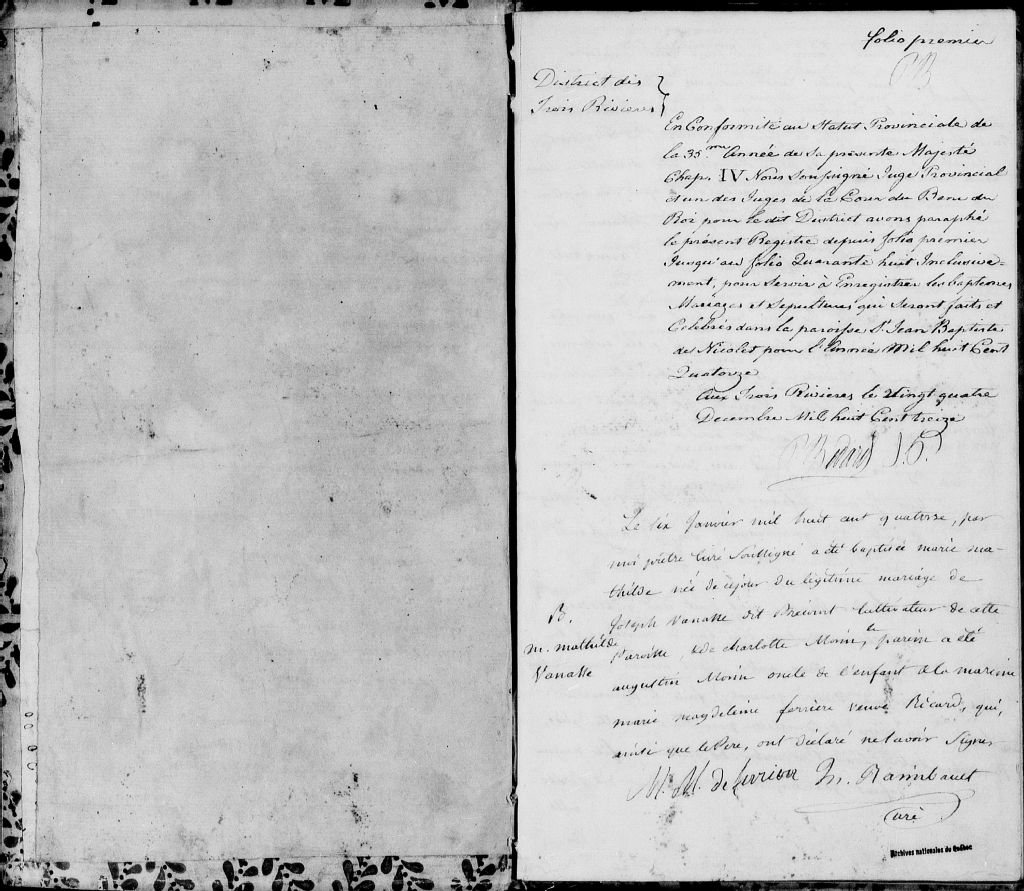 folio premier
PB
District des
Trois Rivieres
En Conformité au Statut Provinciale de
la 35.me Année de Sa présente Majesté
Chap. IV Nous Soussigné Juge Provincial
et un des Juges de la Cour du Banc du
Roi pour le dit District avons paraphé
le présent Registre depuis folio premier
Jusqu'au folio Quarante huit Inclusive-
ment, pour Servir à Enregistrer les baptemes
Mariages et Sepultures qui Seront faits et
Celebrés dans la paroisse St Jean Baptiste
de Nicolet pour l'Année Mil huit Cent
Quatorze
Aux Trois Rivieres le Vingt quatre
Decembre Mil huit Cent treize
P Bedard J.P.
Le six Janvier mil huit cent quatorse, par
moi prêtre Curé Soussigné a été baptisée marie ma-
thilde née de ce jour du légitime mariage de
B.
m. mathilde
Vanasse
Joseph Vanasse dit Precourt Cultivateur de cette
Paroisse, & de charlotte Morin, parein a été
augustin Morin oncle de l'enfant & la mareine
marie magdeleine ferrière veuve Ricard, qui,
ainsi que le Pere, ont déclaré ne savoir Signer
M. Raimbault
Curé
Archives nationales du Québec